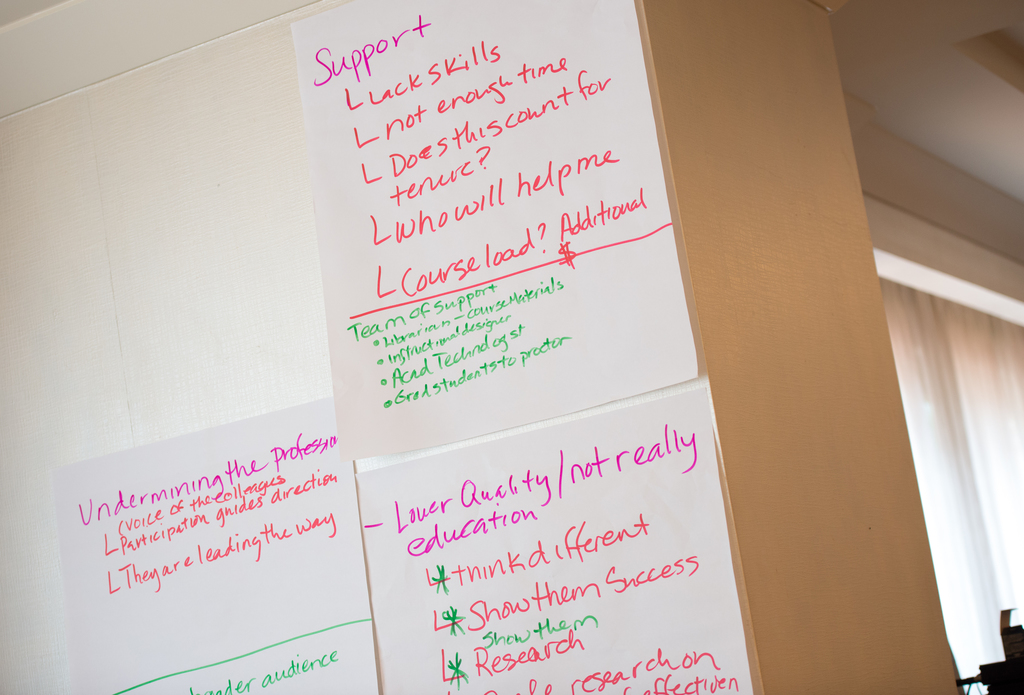 Support
Lack skills
not enough time
Does this count for
tenure?
Who will help me
Course load? Additional
$
Team of Support
• Librarian - course Materials
• Instructional designer
• Acad Technologist
• Grad students to proctor
Undermining the profession
(voice of the colleages
Participation guides direction
They are leading the way
audience
- Lower Quality/not really
education
* think different
* Show them Success
Show them
* Research
research on